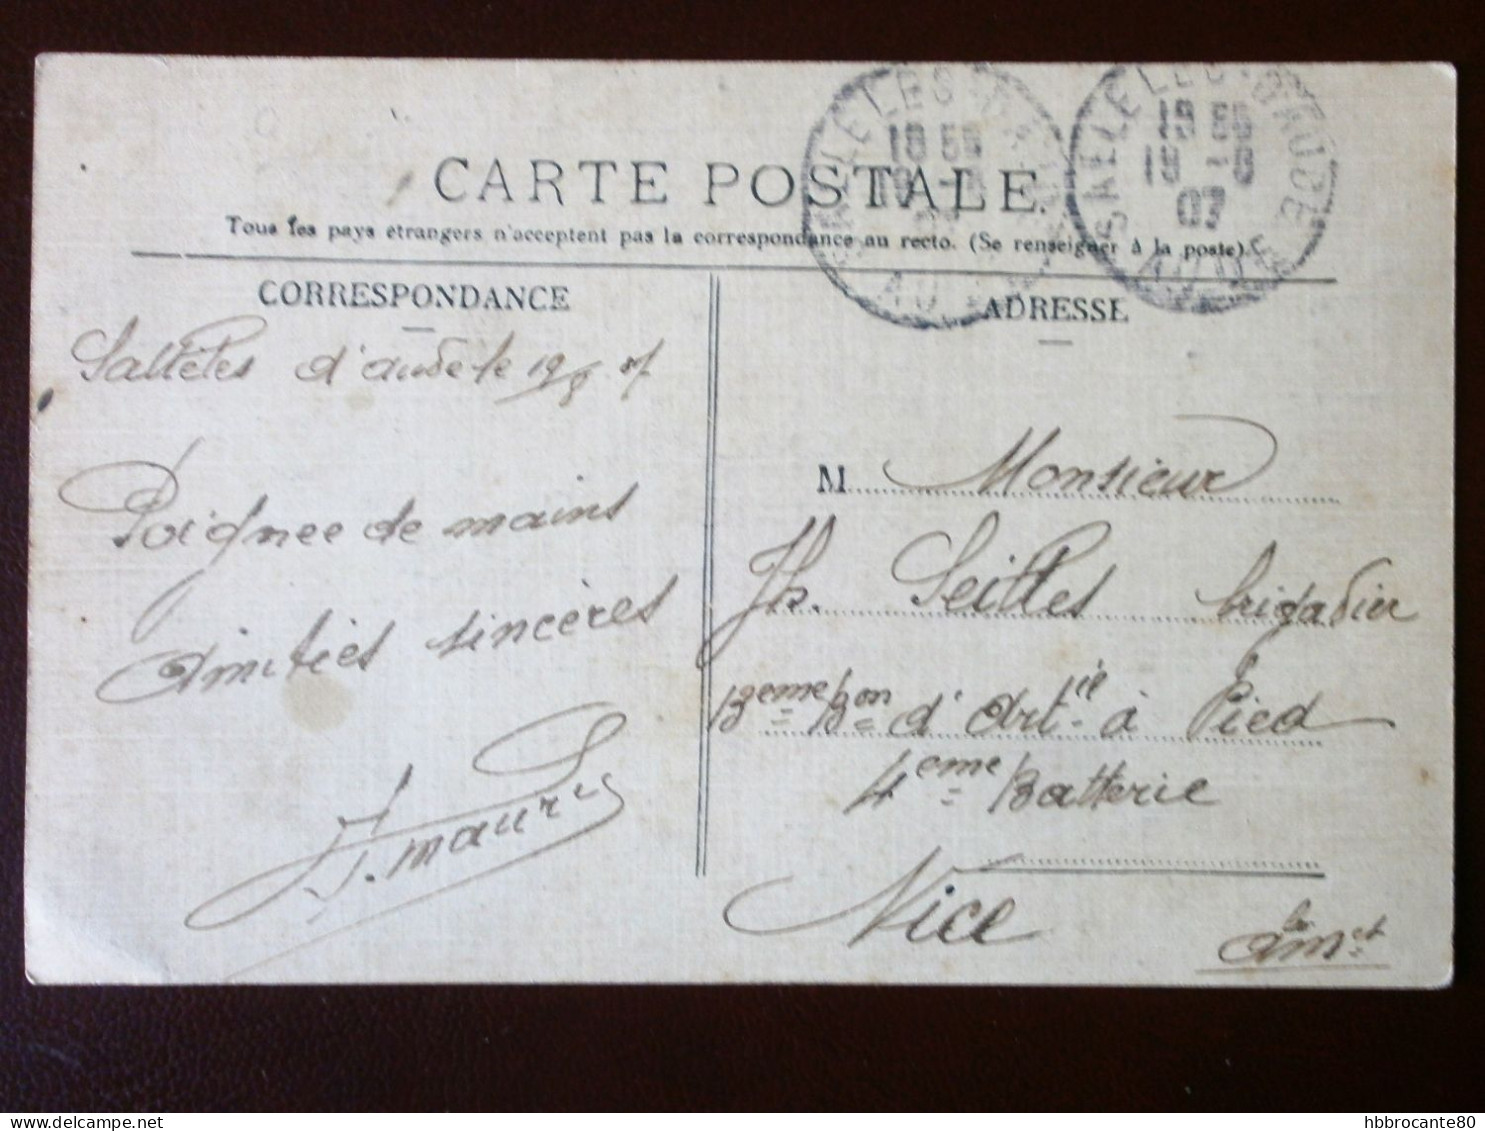 CARTE POSTALE.
Tous les pays étrangers n'acceptent pas la correspondance au recto. (Se renseigner à la poste).
SALLELES D'AUDE
AUDE
SALLELES D'AUDE
07
AUDE
CORRESPONDANCE
Sallèles d'aude le 19/8 07
Poignee de mains
amitiés sincères
J. maury
ADRESSE
M Monsieur
Jh. Seilles brigadier
13eme Bon d'Artie à Pied
4eme Batterie
Nice
hbbrocante80